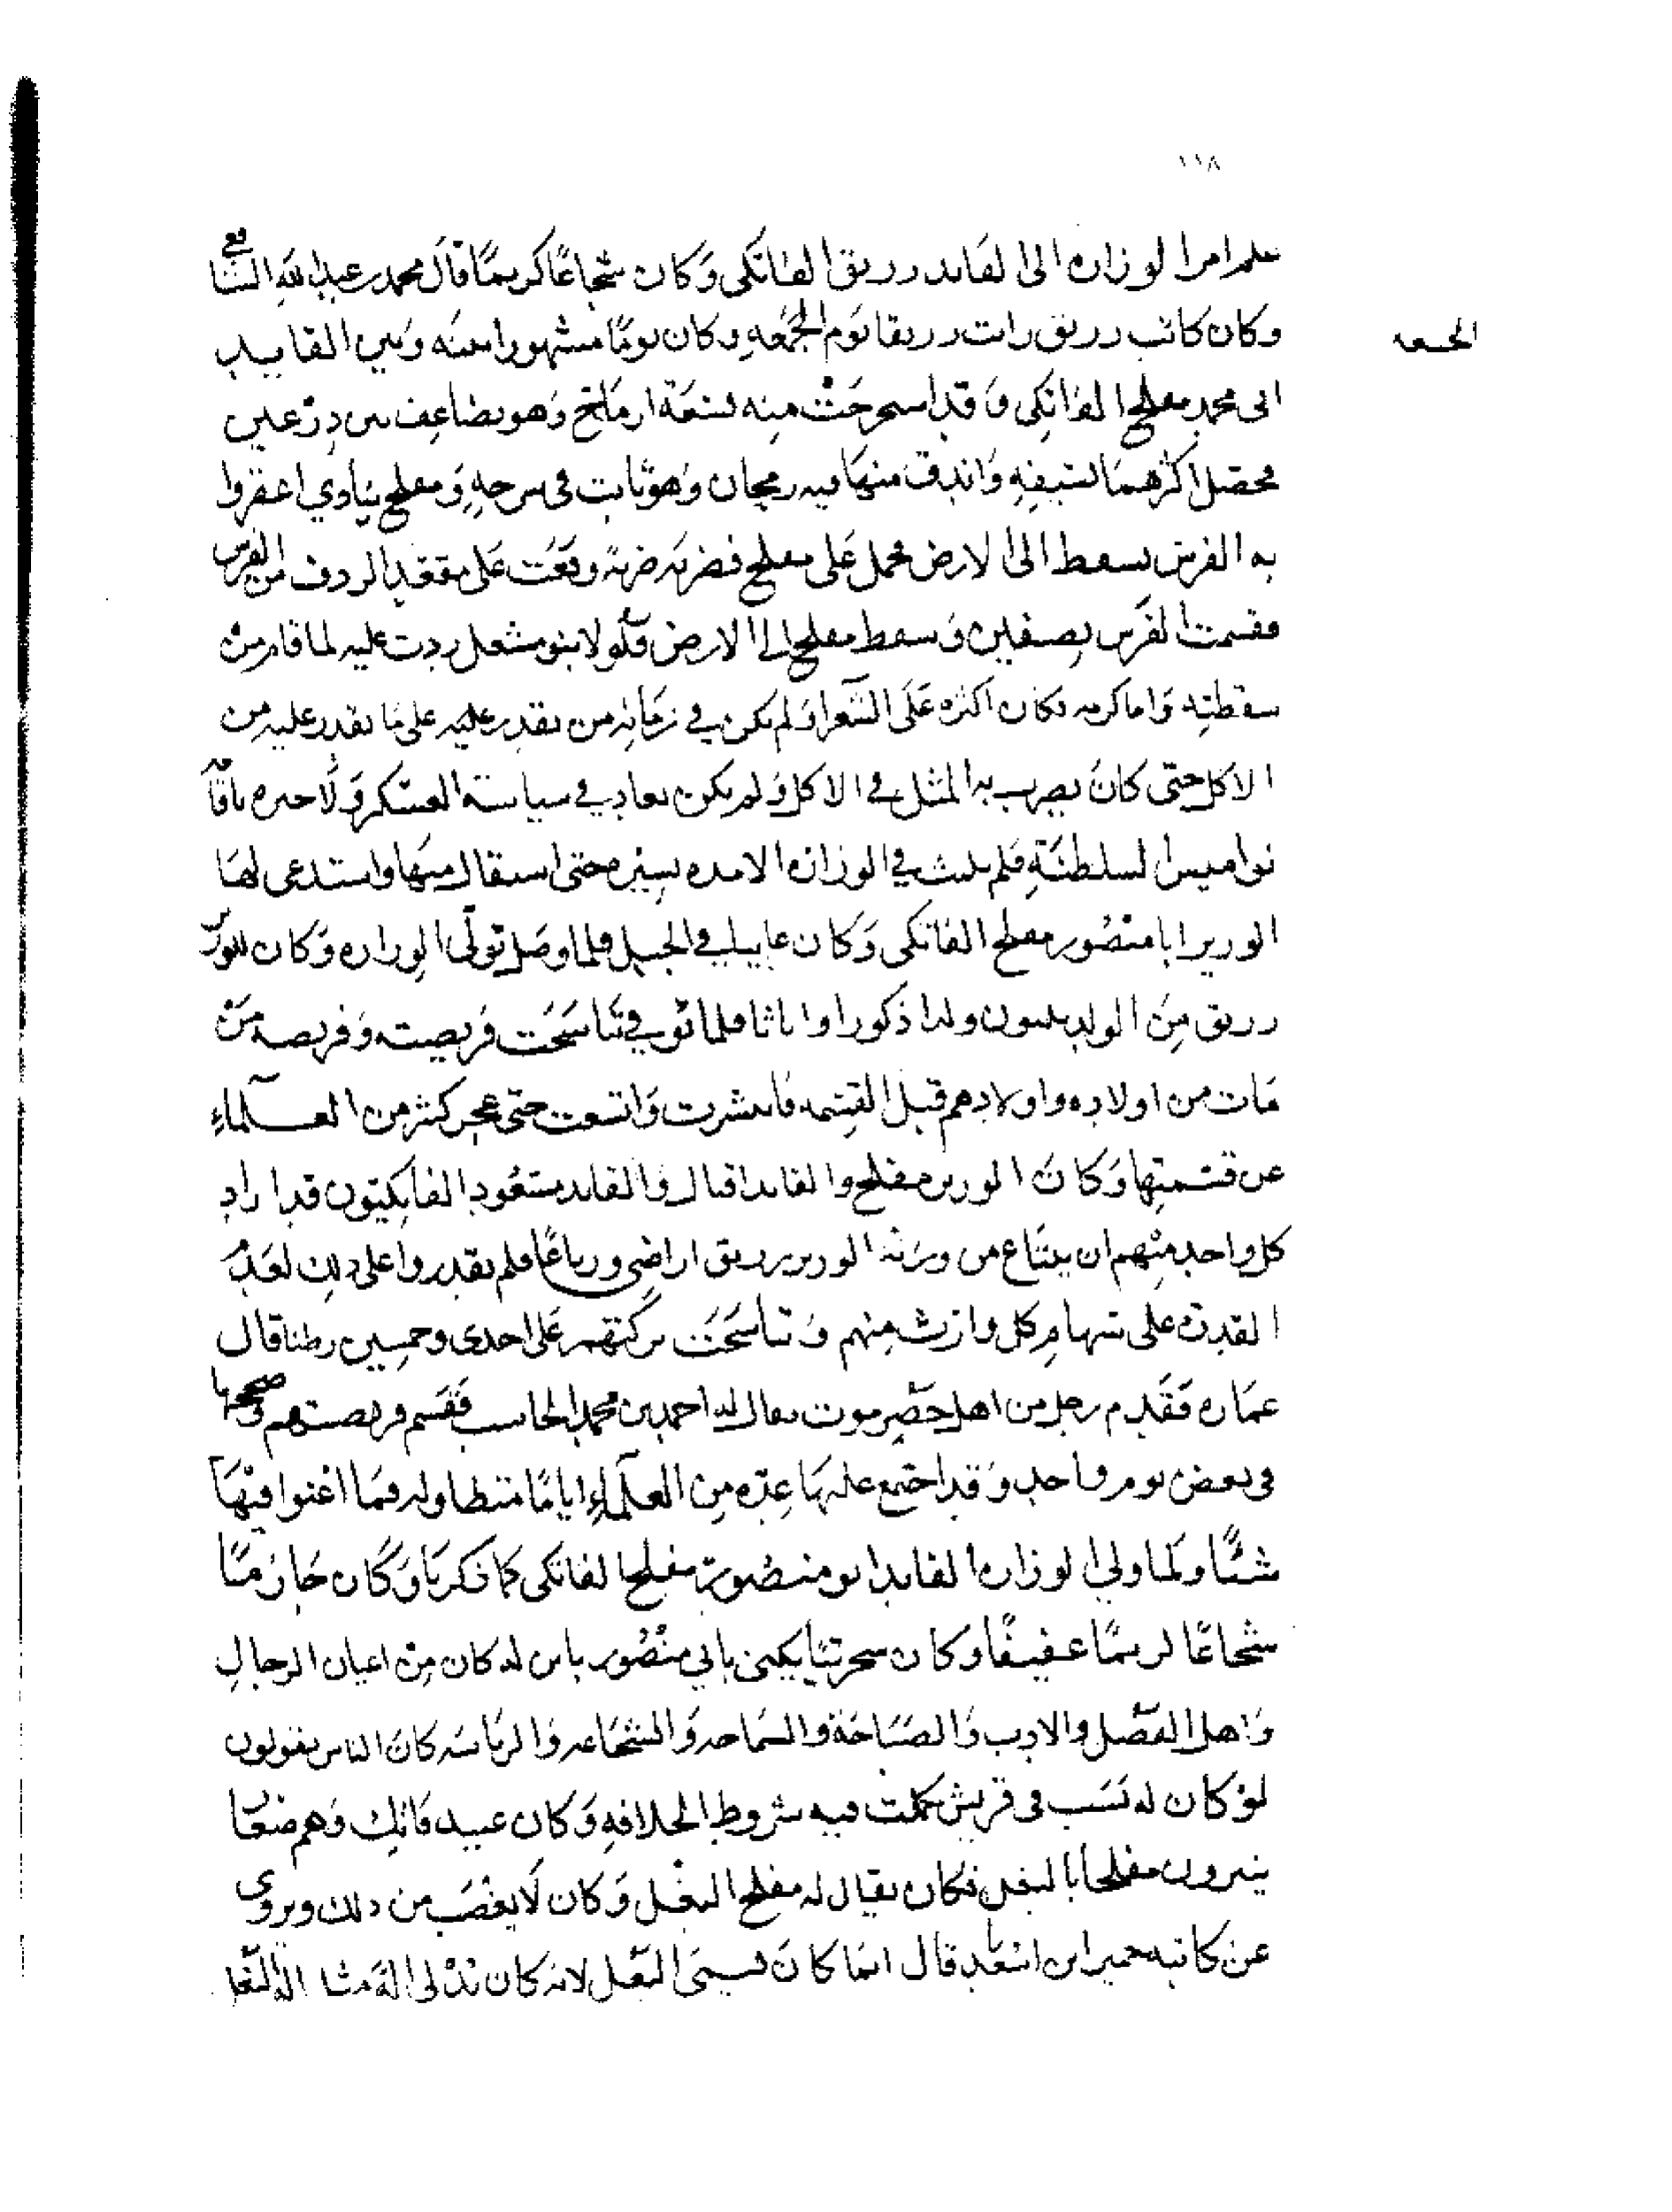 ١١٨
علم امر الوزاره الى القايد رزيق الفاتكى وَكان شجاعًا كريمًا قال محمد بن عبد الله اليافعي
وكان كاتب رزيق رايت رزيقا يَوم الجمُعَهِ وكان يومًا مشهورا بينَه وَبين القايد
الجمعه
ابى محمد مفلح الفاتِكى وَقد اسحرجَتْ مِنه تسعَة ارمَاح وَهو يضاعِف بين دِرْعين
محصل اكثرهمَا بسَيفِهِ وَاندق منهَا فيه رمحان وَهو ثابت فى سرجهِ وَمفلح ينادي اعقروا
به الفرس فسقط الى الارض فحمل عَلى مفلح فضربَه ضربَة وقعَت عَلى مقعَد الردف من الفرس
فقسمت الفَرس بِصفين وَسقط مفلح الى الارض وَلَولا بنو مشعل ردت عليه لما قام من
سقطتِه وَاما كرمه فكان اكثره عَلَى الشعرا وَلم يكن في زمَانِه من يقدر عليه على مَا يقدر عليه من
الاكل حتى كانَ يضرب به المثل في الاكل وَلم يكن بعاد في سياسَة العسْكر وَلَا خبره باقامة
نواميس السلطنَةِ فلم يلبث في الوزاره الا مده يسِيره حتى استقال مِنهَا واستدعى لهَا
الوزير ابا منصُور مفلح الفاتكى وَكان غايبا في الجبل فلما وصَل تولَّى الوزاره وَكان للوزير
رزيق مِنَ الولد ثلثون ولدا ذكورا واناثا فلما توفي تنَاسَخَت فريضته وَفريضه مَن
مَات من اولاده واولادهم قبل القسِمه فانتشرت وَاتسعت حتى عجز كثير من العلماءِ
عن قسْمتِهَا وَكانَ الوزير مفلح والقايد اقبال وَالقايد مسْعُود الفاتكيّون قد اراد
كل واحد منْهم ان يبتَاع من ورَثة الوزير رزيق اراضِى ورباعًا فلم يقدروا على ذلِك لعَدم
القدرة على سهام كل وارث مِنهم وَتناسَخَت تركتهم عَلى احدى وخمسِين بطنا قال
عمَاره فقَدم رجل من اهل حضرموت يقال له احمد بن محمد الحاسب فَقَسم فريضتهم وَصححها
فى بعض يوم واحد وَقد اجتمع عليهَا عِدّه مِن العلمَاءِ ايامًا متطاوله فمَا اغنوا فيْهَا
شيئًا ولَما ولي الوزاره القايد ابو منصُور مفلح الفاتكى كما ذكرنَا وَكَان حَازمًا
شجاعًا كريمًا عفيفًا وكان سحرتيًا يكنى بابي منْصُور باسم ولد كان مِن اعيان الرجالِ
وَاهل الفَضْل والادب وَالصبَاحَة والسمَاحه وَالشجَاعه وَالريَاسَه كانَ الناس يقولون
لوْ كان له نَسَب فى قريش كملت فيه شروط الخلافهِ وَكان عبيد فاتِك وَهم
ينبزون مفلحا بالبغل فكان يقال له مفلح البغْل وَكان لَا يغْضَب من ذلك ويروى
عن كاتبه حمير ابن اسْعَد قال انمَا كانَ يسمى البغل لانه كان